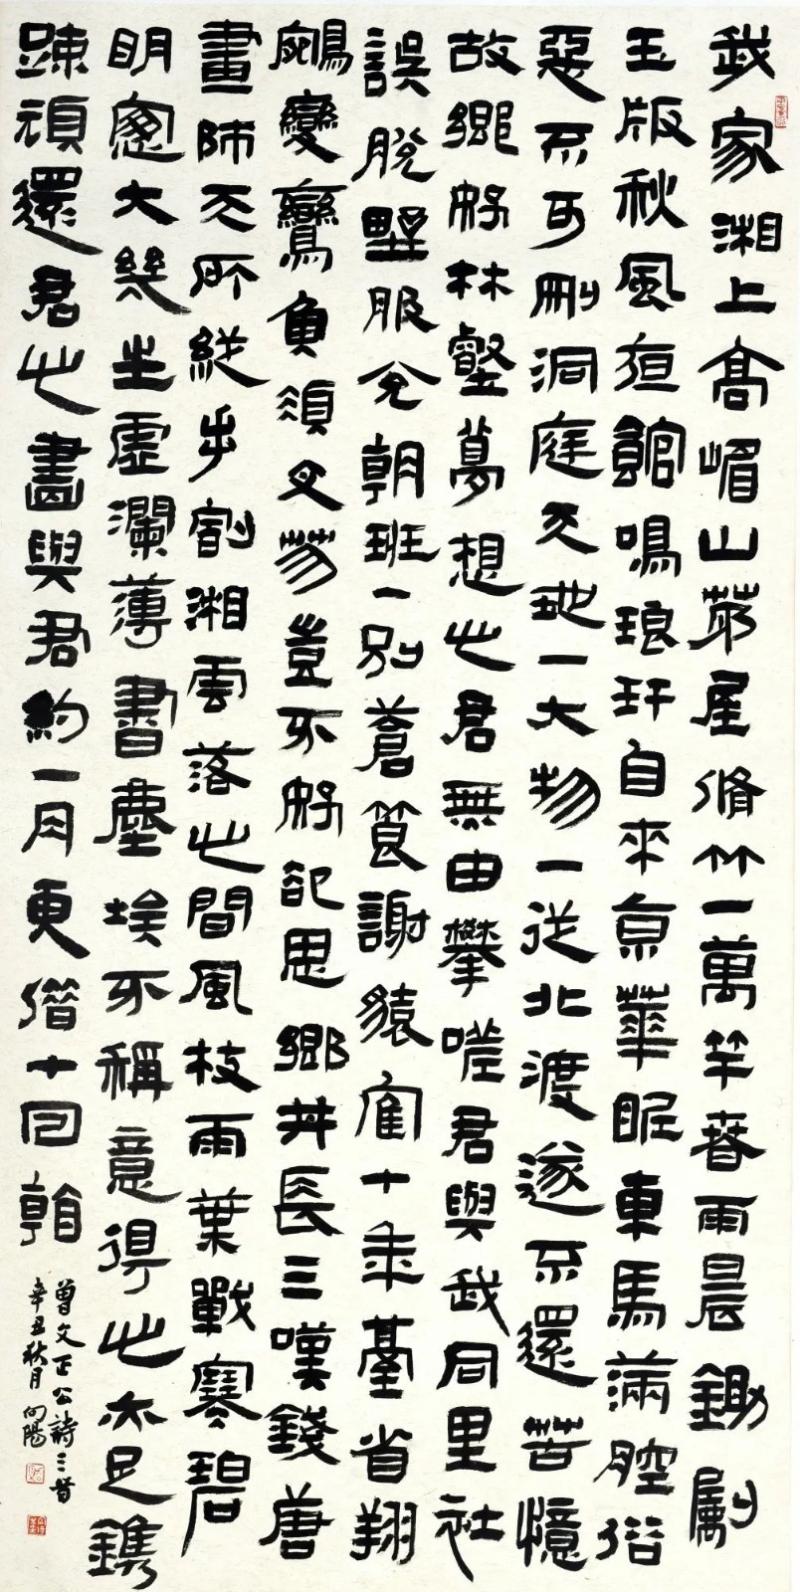 我家湘上高嵋山茅屋脩竹一萬竿春雨晨鋤劚
玉版秋風夜館鳴琅玕自來京華眠車馬滿腔俗
惡不可刪洞庭天地一大物一從北渡遂不還苦憶
故鄉好林壑夢想此君無由攀嗟君與我同里社
誤脫野服充朝班一別蒼筤謝猿鶴十年臺省翔
鵷變鸞魚須文笏豈不好卻思鄉井長三嘆錢唐
畫師天所縱手割湘雲落此間風枝雨葉戰寒碧
明窻大幾生虛瀾薄書塵埃不稱意得此亦足鐫
踈頑還君此畫與君約一月更借十回看
曾文正公詩三首
辛丑秋月向陽